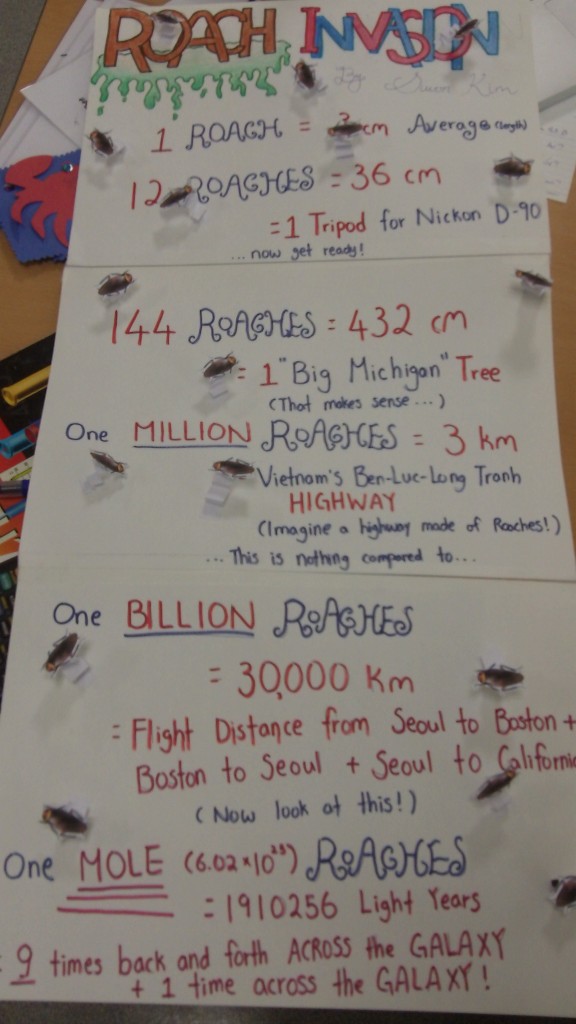 ROACH INVASION
By Suan Kim
1 ROACH = 3 cm Average (length)
12 ROACHES = 36 cm
= 1 Tripod for Nickon D-90
...now get ready!
144 ROACHES = 432 cm
= 1 "Big Michigan" Tree
(That makes sense...)
One MILLION ROACHES = 3 km
Vietnam's Ben-Luc-Long Tranh
HIGHWAY
(Imagine a highway made of Roaches!)
... This is nothing compared to...
One BILLION ROACHES
= 30,000 Km
= Flight Distance from Seoul to Boston +
Boston to Seoul + Seoul to California
(Now look at this!)
One MOLE (6.02 x 10²³) ROACHES
= 1910256 Light Years
= 9 times back and forth ACROSS the GALAXY
+ 1 time across the GALAXY!